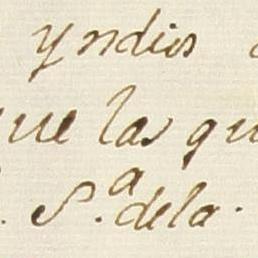 yndios
que las qu
S.ª dela